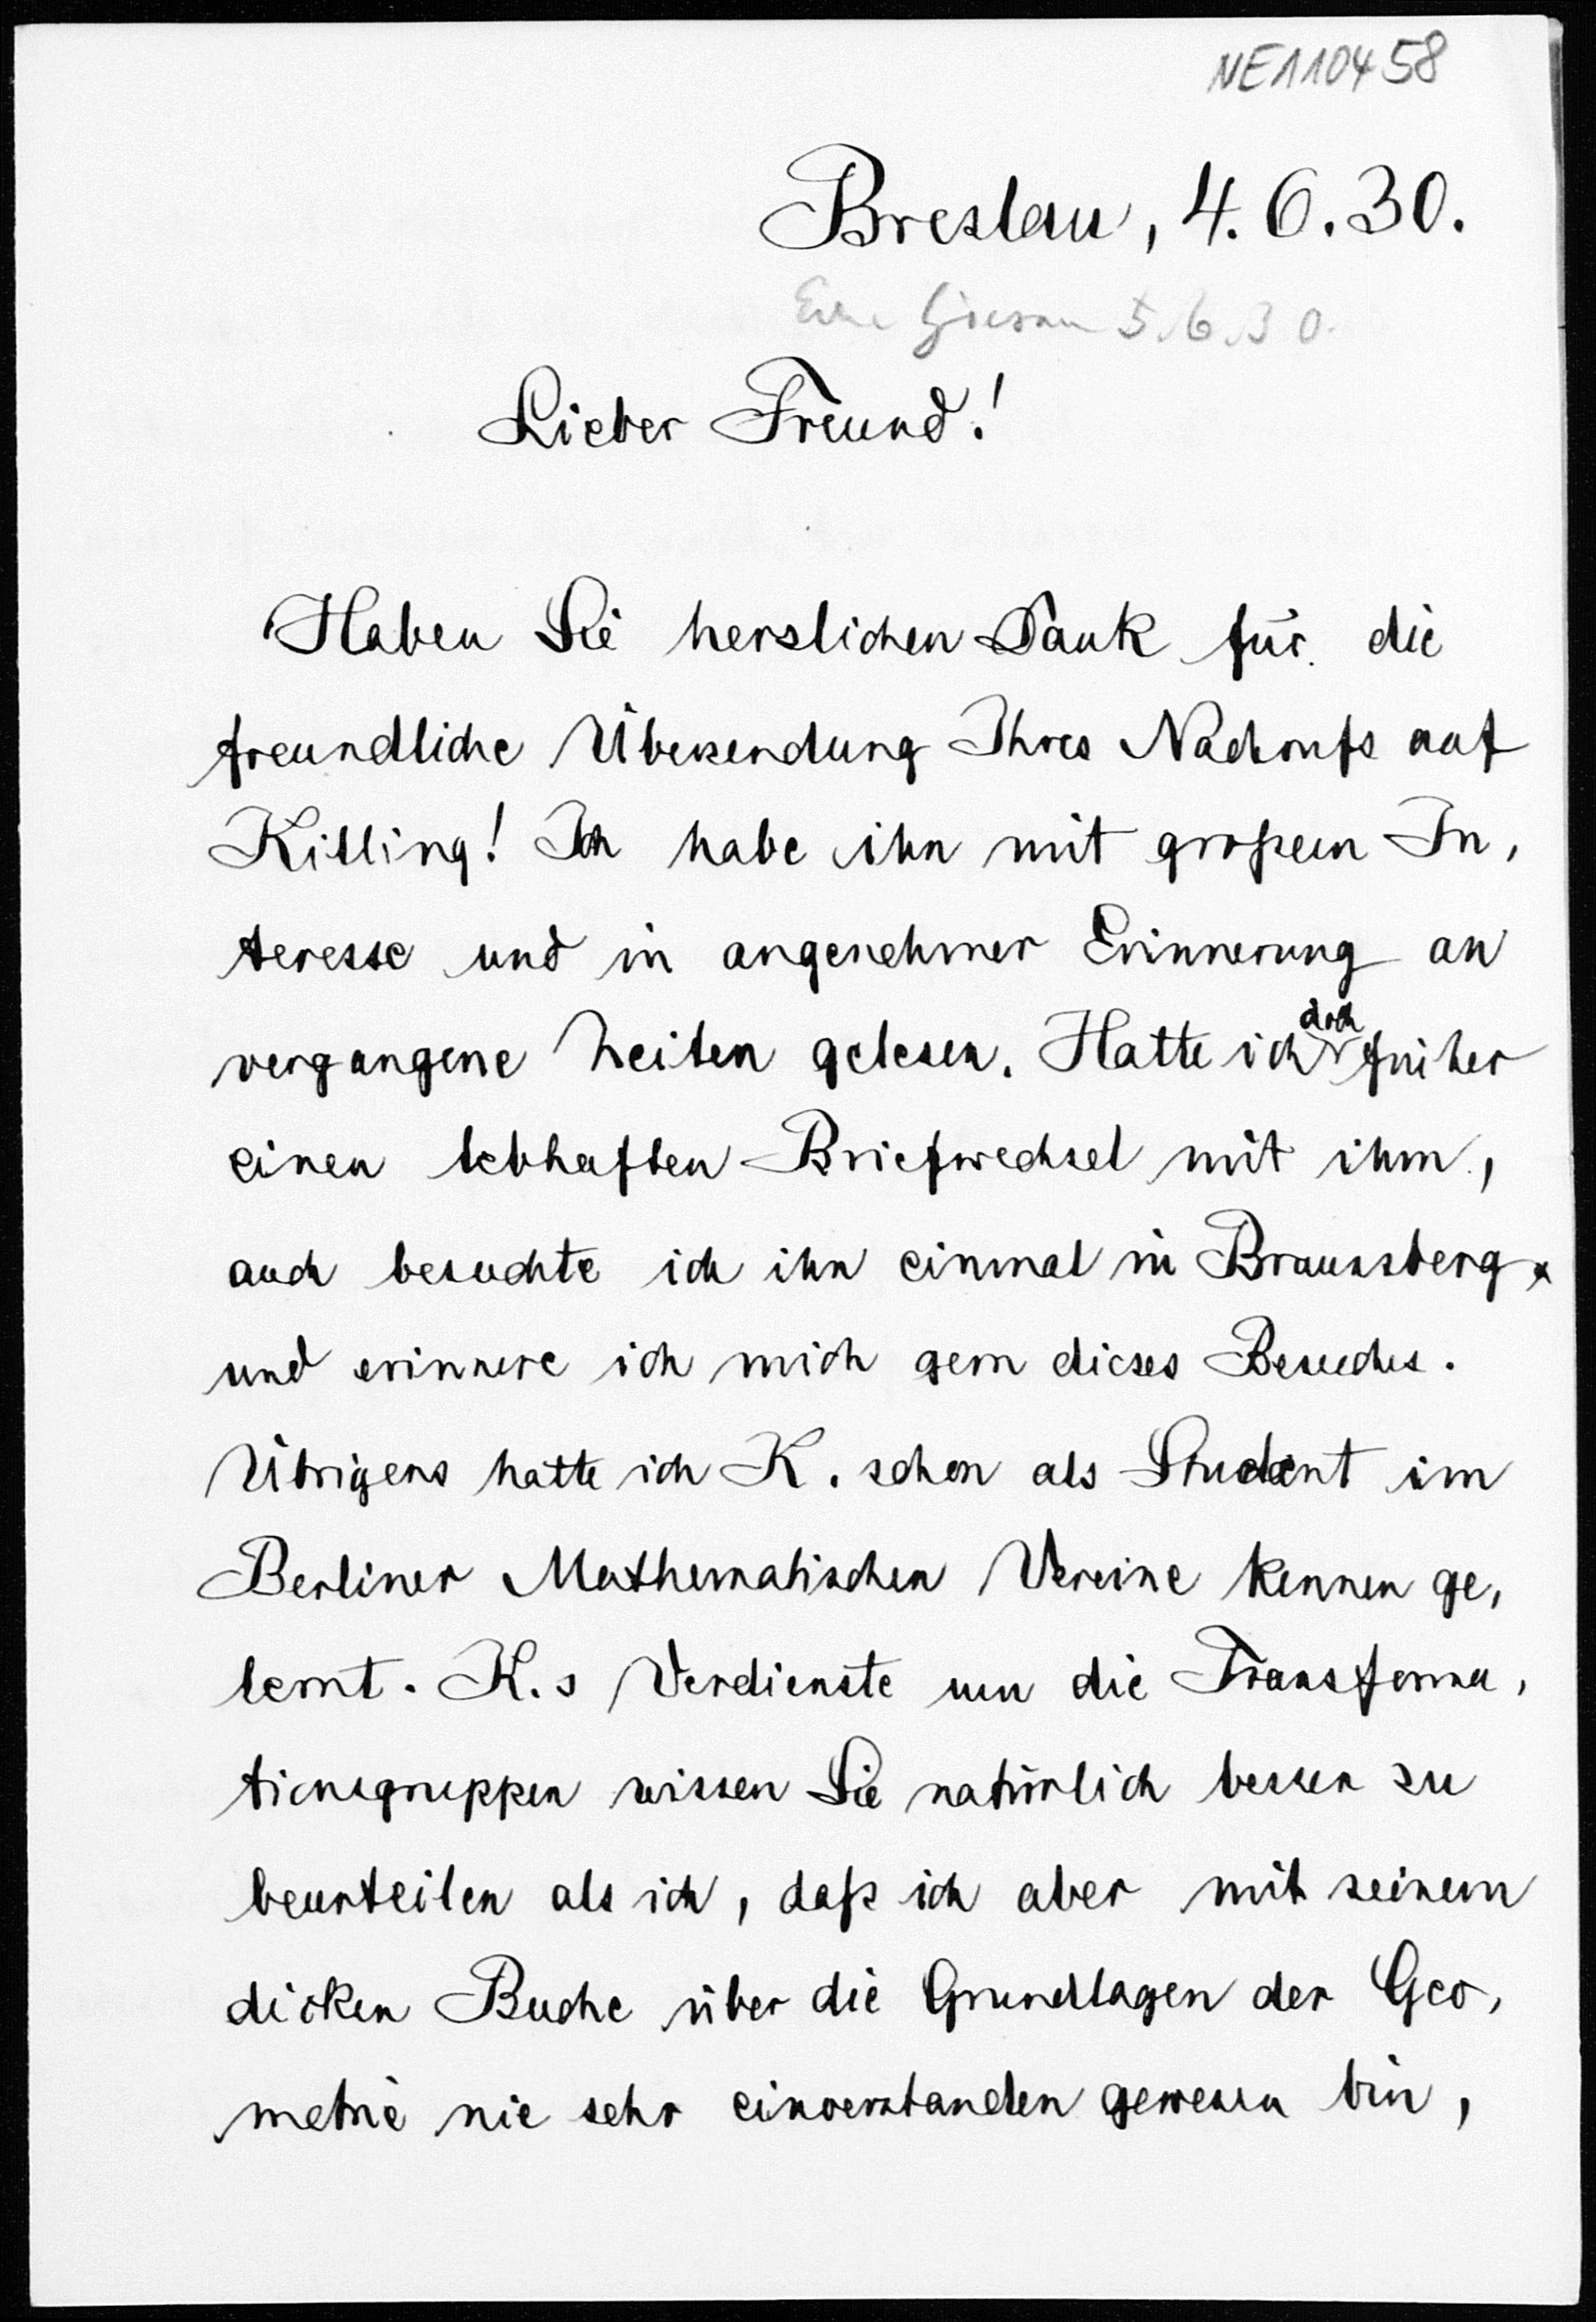 NE110458
Breslau, 4.6.30.
Giessen 5.6.30.
Lieber Freund!
Haben Sie herzlichen Dank für die
freundliche Übersendung Ihres Nachrufs auf
Killing! Ich habe ihn mit großem In,
teresse und in angenehmer Erinnerung an
vergangene Zeiten gelesen. Hatte ich doch früher
einen lebhaften Briefwechsel mit ihm,
auch besuchte ich ihn einmal in Braunsberg
und erinnere ich mich gern dieses Besuches.
Übrigens hatte ich K. schon als Student im
Berliner Mathematischen Vereine kennen ge,
lernt. K.s Verdienste um die Transforma,
tionsgruppen wissen Sie natürlich besser zu
beurteilen als ich, daß ich aber mit seinem
dicken Buche über die Grundlagen der Geo,
metrie nie sehr einverstanden gewesen bin,